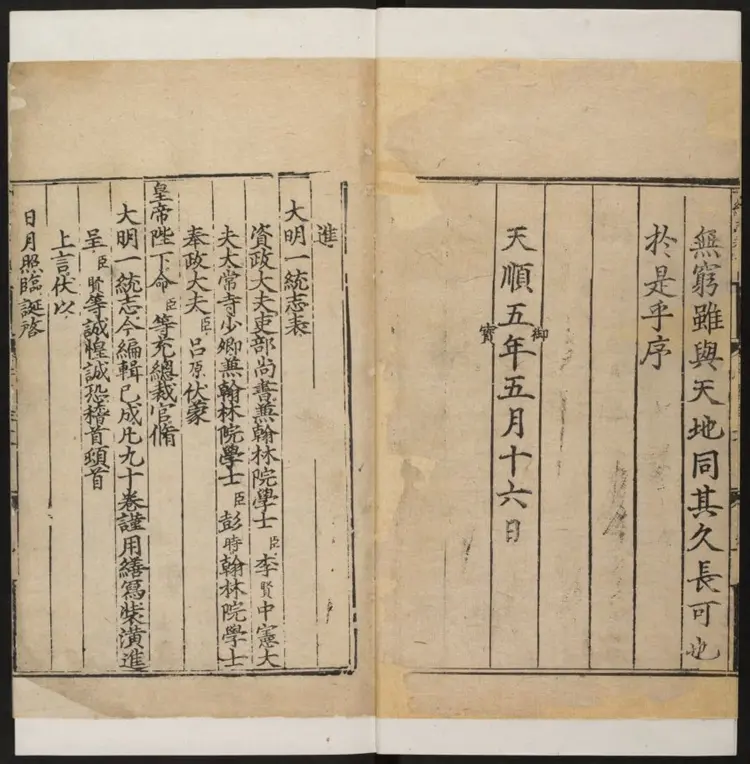 無窮雖與天地同其久長可也
於是乎序
天順五年五月十六日
御
寶
進
大明一統志表
資政大夫吏部尚書兼翰林院學士臣李賢中憲大
夫太常寺少卿兼翰林院學士臣彭時翰林院學士
奉政大夫臣呂原伏蒙
皇帝陛下命臣等充總裁官脩
大明一統志今編輯已成凡九十卷謹用繕寫裝潢進
呈臣賢等誠惶誠恐稽首頓首
上言伏以
日月照臨誕啓